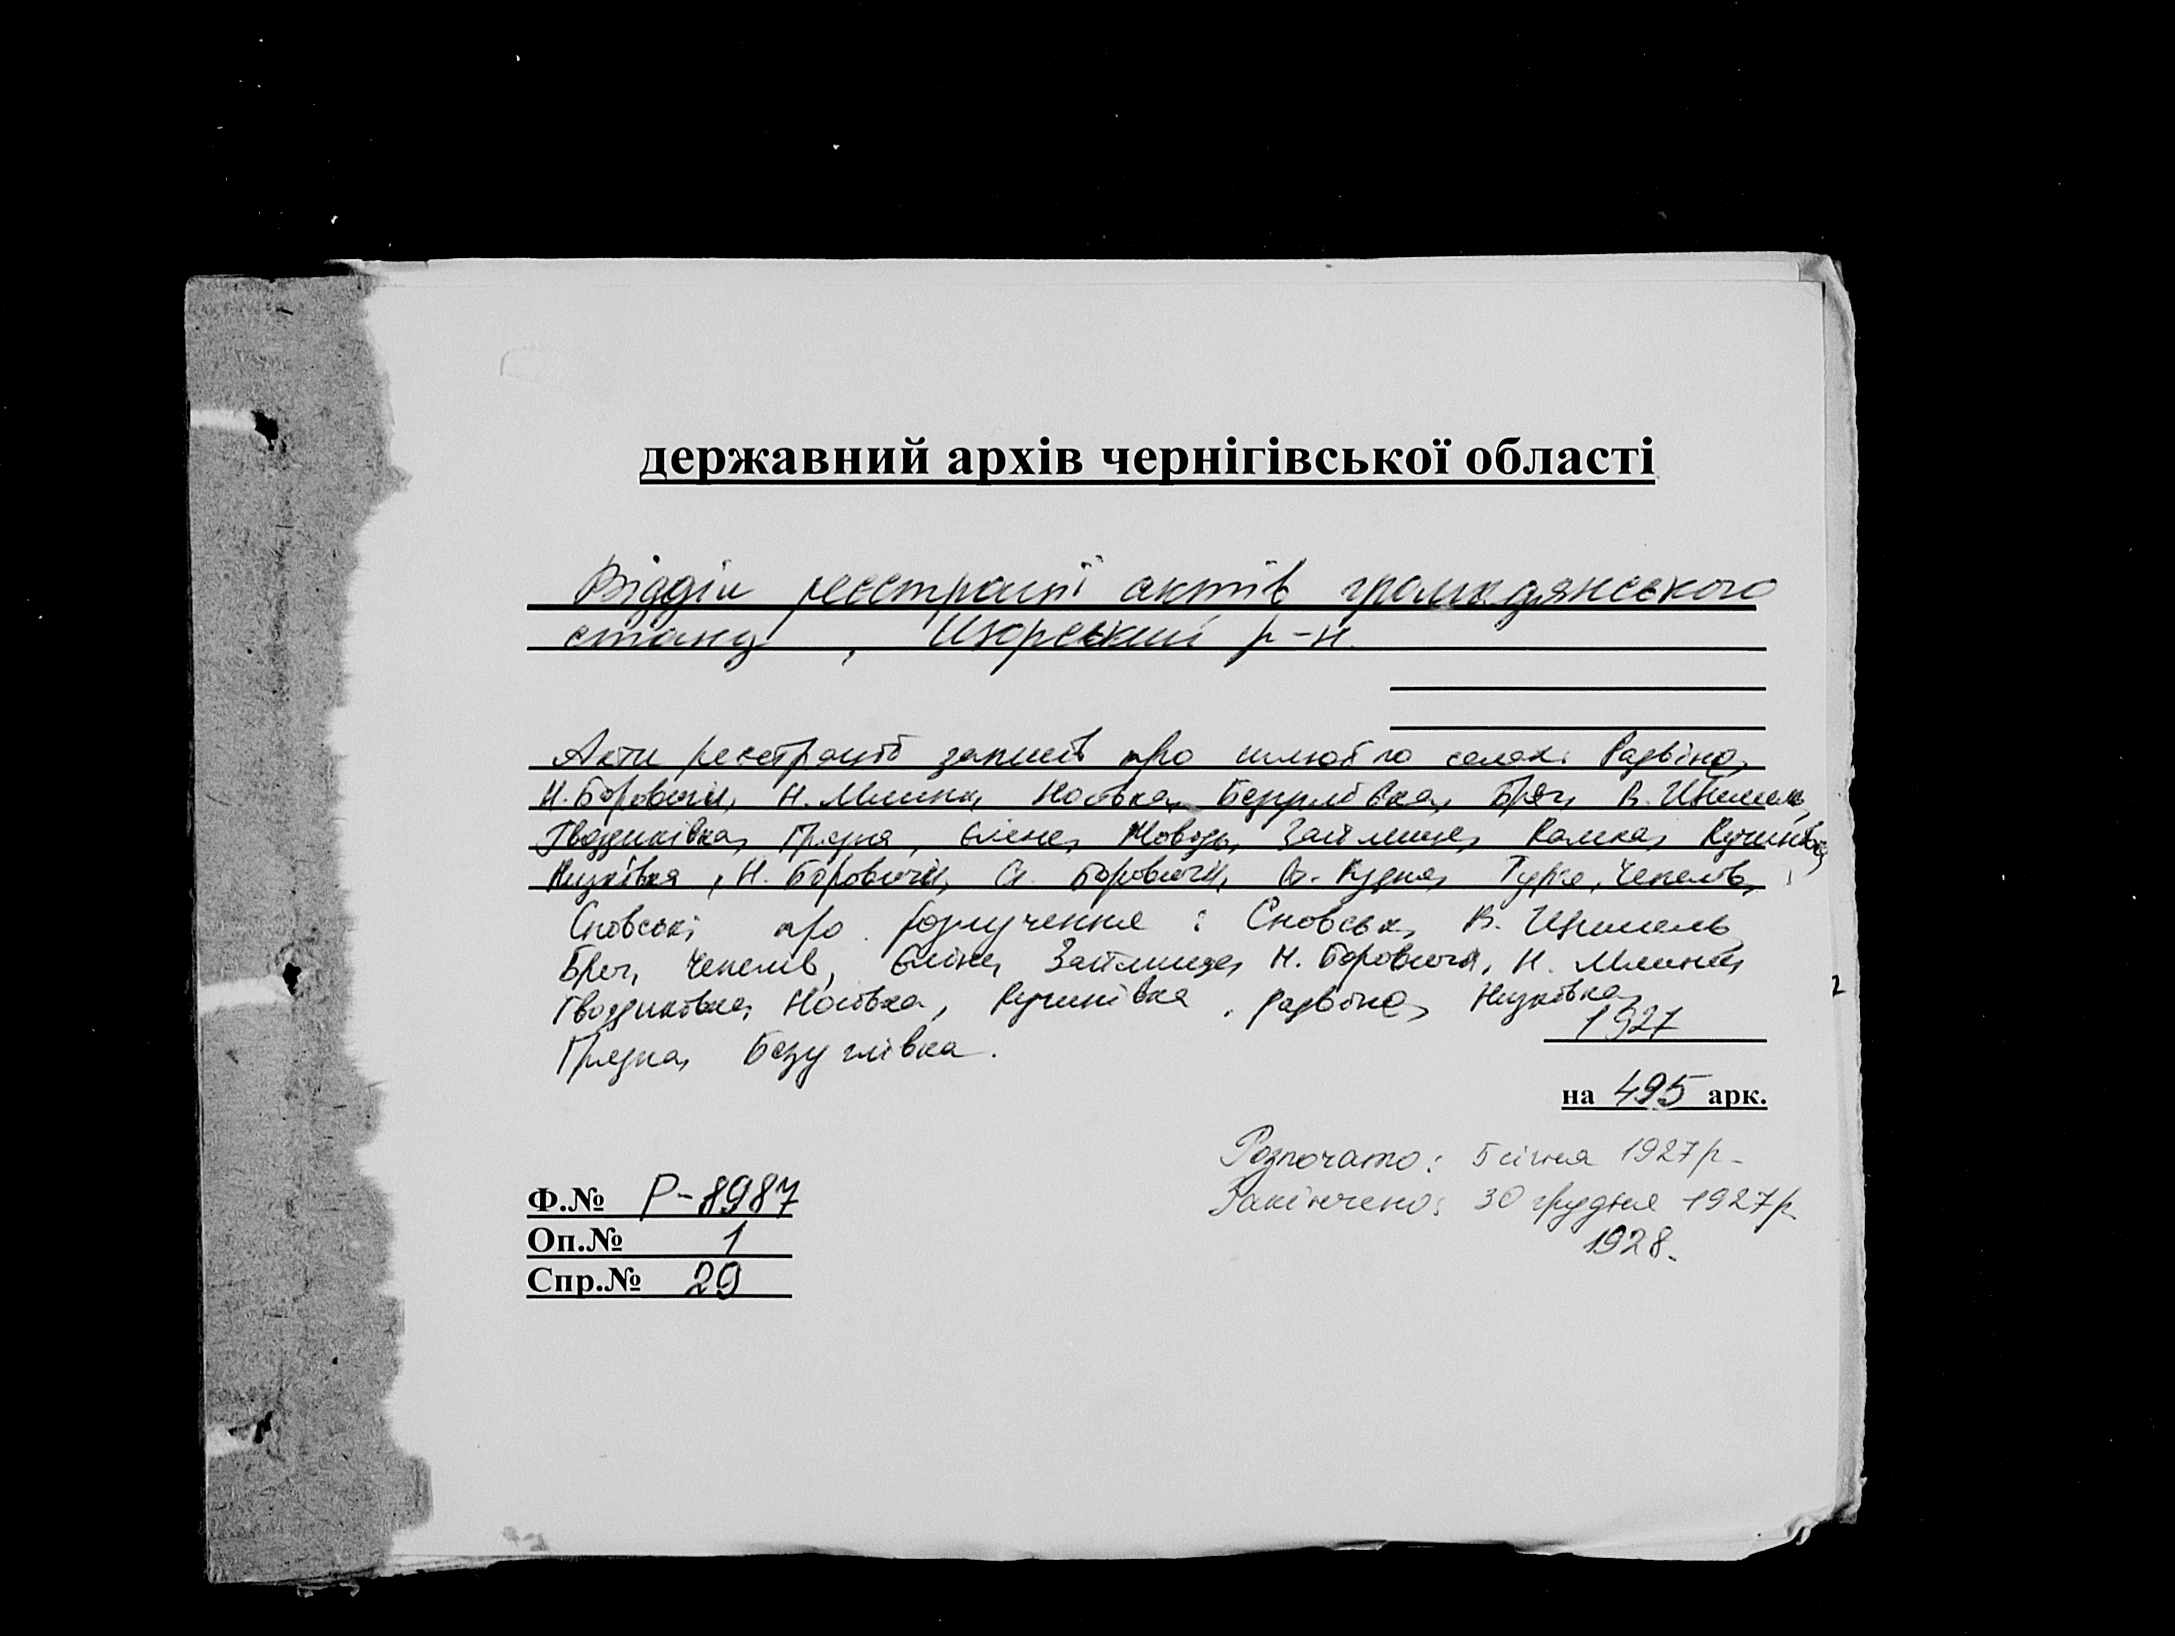 державний архів чернігівської області
Відділ реєстрації актів громадянського
стану, Щорський р-н.
Акти реєстрації записів про шлюб по селах: Радвіно,
Н. Боровичи, Н. Млини, Носівка, Безуглівка, Бреч, В. Щимель,
Гвоздиківка, Грязна, Єліне, Жовідь, Займище, Камка, Кучинівка,
Низківка, Н. Боровичи, С. Боровичи, Рудня, Турья, Чепелів,
Сновськ; про розлучення: Сновськ, В. Щимель,
Бреч, Чепелів, Єліне, Займище, Н. Боровичи, Н. Млини,
Гвоздиковка, Носівка, Кучинівка, Радвіно, Низківка,
1927
Грязна, Безуглівка.
на 495 арк.
Розпочато: 5 січня 1927р.
Закінчено: 30 грудня 1927р
1928.
Ф.№ Р-8987
Оп.№ 1
Спр.№ 29